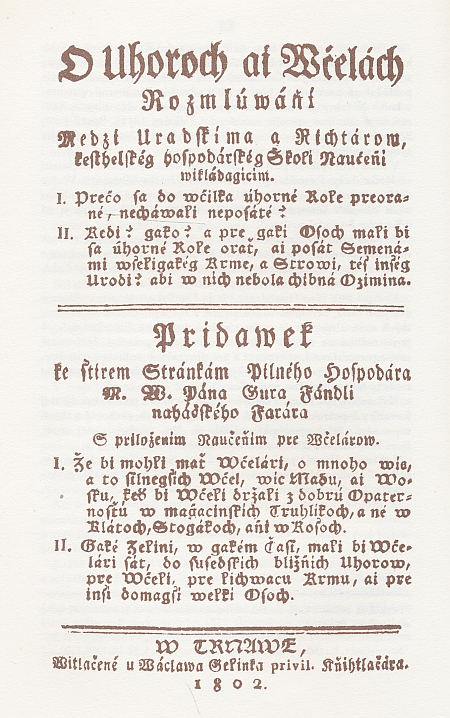 O Uhoroch ai Wčelách
Rozmlúwáňí
Medzi Uradskíma a Richtárow,
kesthelskég hospodárskég Školi Naučeňi
wikládagicim.
I. Prečo sa do wčilka úhorné Role preora-
né, necháwali neposáté?
II. Kedi? gako? a pre gaki Osoch mali bi
sa úhorné Role orať, ai posáť Semená-
mi wseligakég Krme, a Strowi, téš inség
Urodi? abi w nich nebola chibná Ozimina.
Pridawek
ke štirem Stránkám Pilného Hospodára
M. W. Pána Gura Fándli
naháčského Farára
S priloženim Naučeňim pre Wčelárow.
I. Že bi mohli mať Wčelári, o mnoho wic,
a to silnegsích Wčel, wic Madu, ai Wo-
sku, keď bi Wčeli držali z dobrú Opater-
nosťú w magacinskich Truhlikoch, a né w
Klátoch, Stogákoch, aňi w Kosoch.
II. Gaké Zelini, w gakém Časi, mali bi Wče-
lári sáť, do susedskich bližňich Uhorow,
pre Wčeli, pre lichwacu Krmu, ai pre
insí domagsí welki Osoch.
W TRNAWE,
Witlačené u Wáclawa Gelinka privil. Kňihtlačára.
1802.